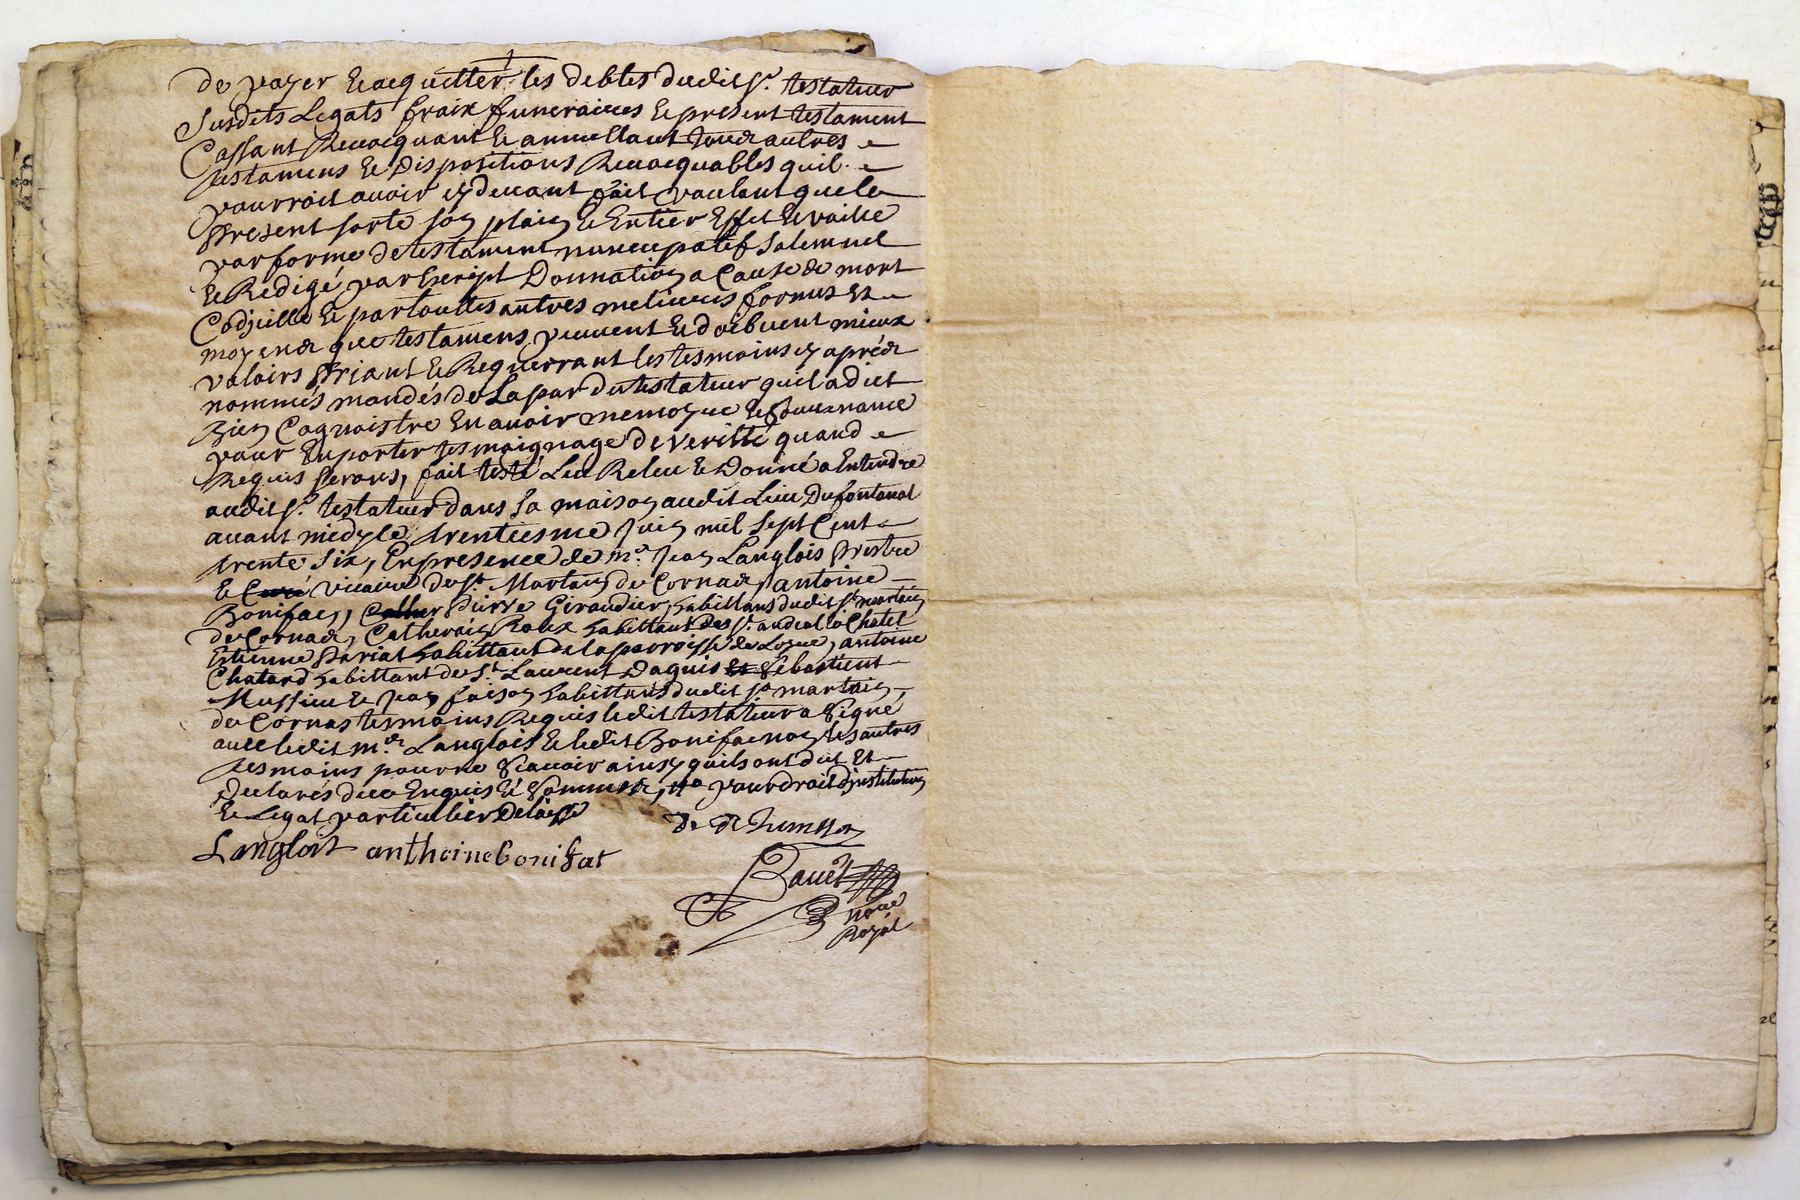 de payer et acquitter les debtes dudit sr. testateur
susdits Legats fraix funeraires et present testament
Cassant Revocquant et annullant tous autres
testamens et Dispositions Revocquables quil
pourroit avoir cy devant fait voulant que le
present sorte son plain et Entier Effet et vaille
par forme de testament nuncupatif solemnel
et Redigé par Escript Donnation a Cause de mort
Codicille et par touttes autres melieures formes et
moyens que testamens peuvent et doibvent mieux
valoirs priant et Requerrant les tesmoins cy aprés
nommés mandés de La par du testateur quil a dict
Bien Cognoistre En avoir memoyre et souvenance
pour En porter tesmoignage de veritté quand
Requis serons, fait testé Leu Releu et Donné a Entendre
audit sr. testateur dans sa maison audit Lieu du fontanal
avant midy le trentiesme Juin mil sept Cent
trente six, En presence de mre. Jean Langlois prestre
et Curé vicaire de st. Martain de Cornas, antoine
Bonifac, Pierre Giraudier, habittans dudit st martain
de Cornas, Catherain Roux habittant des st. andeol
Estienne Periat habittant de la parroisse de, antoine
Chatard habittant de st. Laurent Daguis et Sebastient
Mussieu et Jean faison habittans dudit st martain
de Cornas tesmoins Requis ledit testateur a signé
avec ledit mre Langlois et ledit Bonifac non les autres
tesmoins pour ne scavoir ainsy quils ont dit et
declarés de ce Enquis et sommés, pour droit dinstitution
et Legat particullier Delaissé
Langlois anthoine bonifat
Bauet
nore
Royal